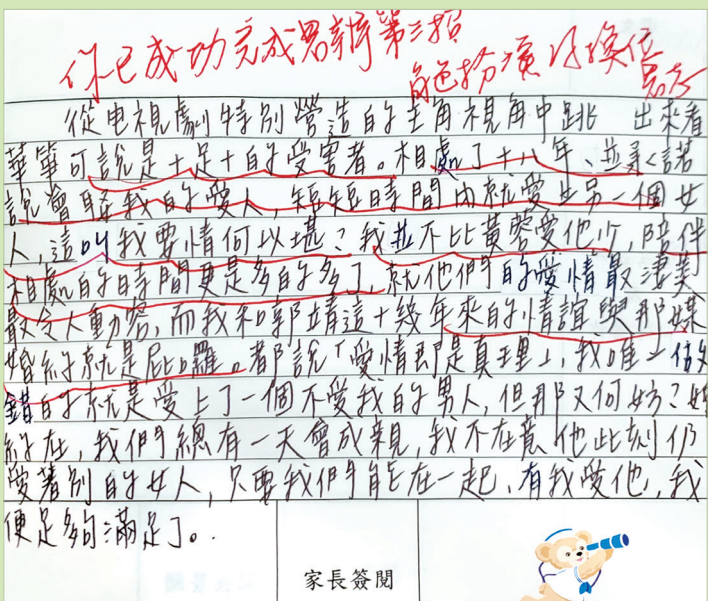 你已成功完成第三招
角色扮演及換位思考
從电視劇特別營造的主角視角中跳 出來看
華箏可說是十足十的受害者。相處了十八年、並承諾
說會娶我的愛人，短短時間內就愛上另一個女
人，這叫我要情何以堪？我並不比黃蓉愛他少，陪伴
相處的時間更是多的多了，就他們的愛情最淒美
最令人動容，而我和郭靖這十幾年來的情誼與那媒
婚約就是屁囉。都說「愛情即是真理」，我唯一做
錯的就是愛上了一個不愛我的男人，但那又何妨？婚
約在，我們總有一天會成親，我不在意他此刻仍
愛著別的女人，只要我們能在一起、有我愛他，我
便足夠滿足了。
家長簽閱